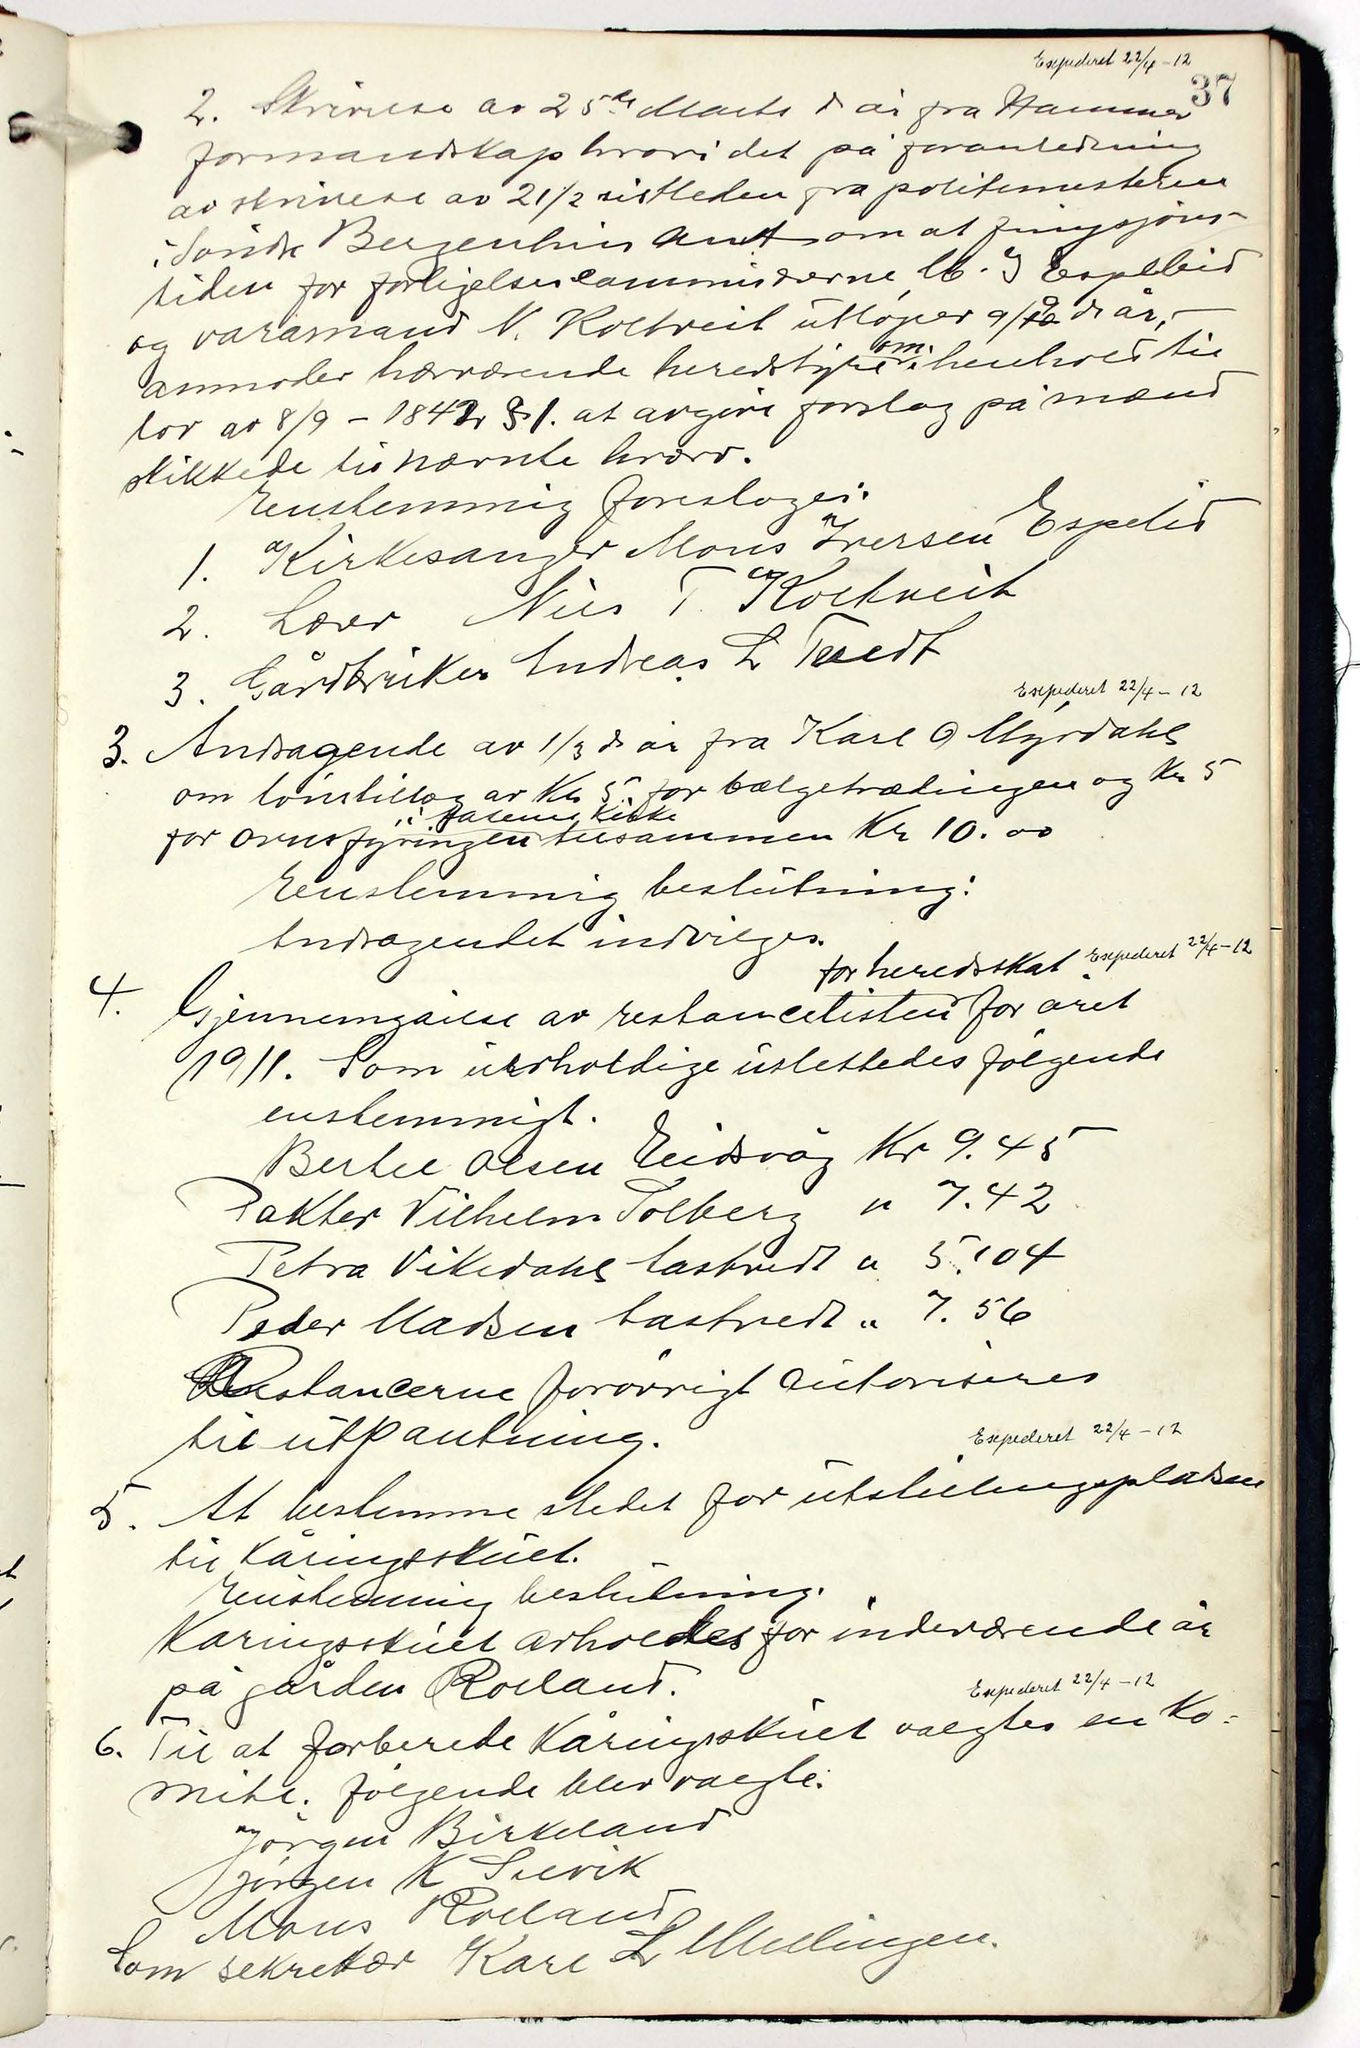 Expederet 22/4-12
37
2. Skrivelse av 25de Marts d år fra Hammer
formandskap hvori det på foranledning
av skrivelse av 21/2 sistleden fra politimesteren
i Søndre Bergenhus Amt om at fungsjøns-
tiden for forligelseskommisærerne, M. I Espelid
og varamand N. Koltveit utløper 9/9 d år, -
anmodes hærværende heredstyre om i henhold til
lov av 8/9 - 1842 § 1. at avgive forslag på mænd
skikkede til nævnte hverv.
Enstemmig foreslåes:
1. Kirkesanger Mons Iversen Espelid
2. Lærer Nils T. Koltveit
3. Gårdbruker Andreas L Tvedt
Expederet 22/4-12
3. Andragende av 1/3 d år fra Karl O Myrdahl
om lønstillæg av Kr 5 for bælgetrædingen og Kr 5
i Salhus Kirke
for ovnsfyringen tilsammen Kr 10.00
Enstemmig beslutning:
Andragendet indvilges.
for heredsskat Expederet 22/4-12
4. Gjennemgåelse av restancelisten for året
1911. Som uerholdige utslettedes følgende
enstemmigt.
Bertel Olsen Eidsvåg Kr 9.45
Pakter Vilhelm Solberg " 7.42
Petra Vikedahl Tastvedt " 5.04
Peder Madsen Tastvedt " 7.56
Restancerne forøvrigt autoriseres
til utpantning.
Expederet 22/4-12
5. At bestemme stedet for utstillingspladsen
til Kåringsskuet.
Enstemmig beslutning.
Kåringsskuet avholdes for indeværende år
på gården Rolland.
Expederet 22/4-12
6. Til at forberede Kåringsskuet valgtes en Ko-
mite. følgende blev valgte:
Jørgen Birkeland
Jørgen K
Mons Rolland
Som sekretær Karl L Mellingen.